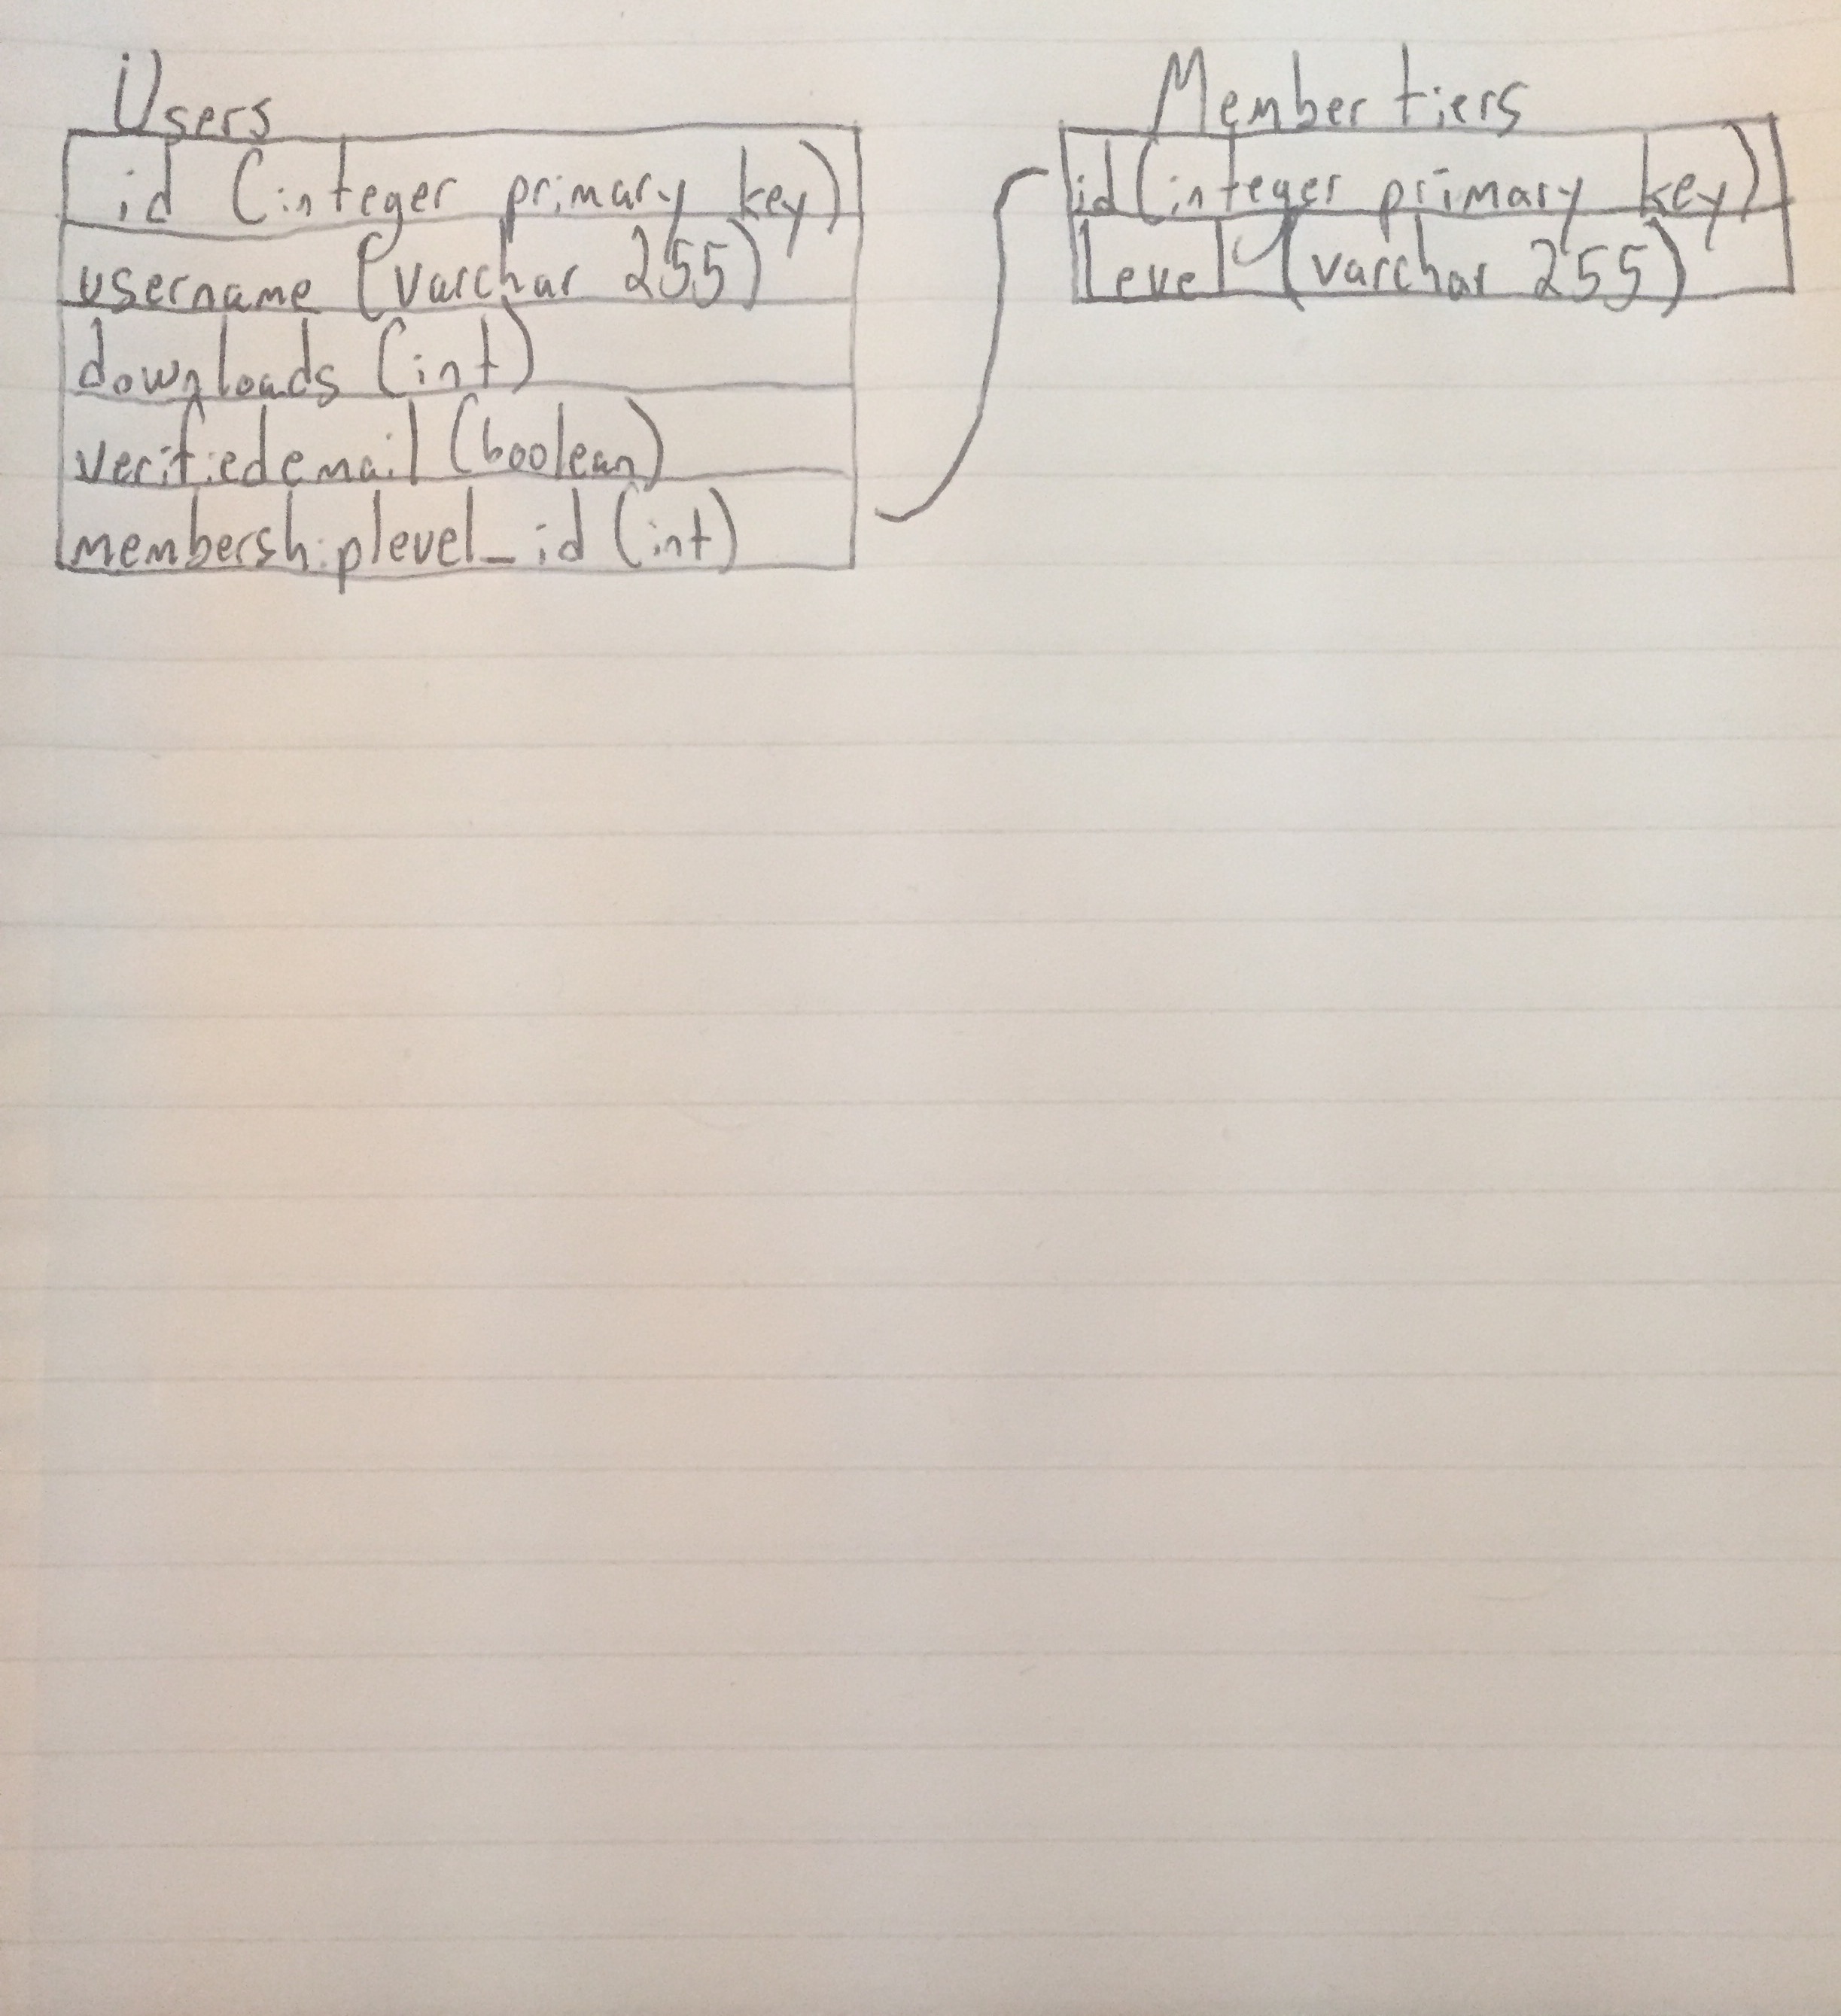 Users
id (integer primary key)
username (varchar 255)
downloads (int)
verifiedemail (boolean)
membershiplevel_id (int)
Member tiers
id (integer primary key)
level (varchar 255)